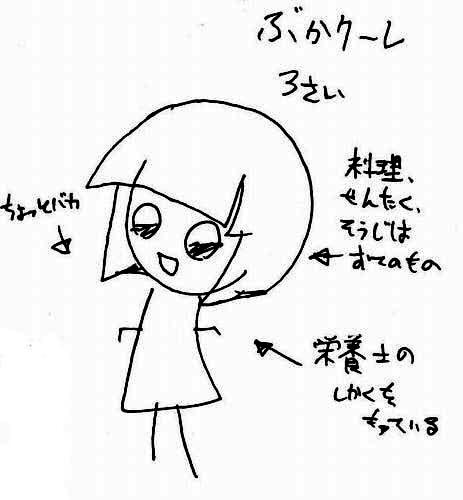 ぶかクーレ
3さい
料理、
せんたく、
そうじは
すてのもの
ちょっとバカ
栄養士の
しかくを
もっている